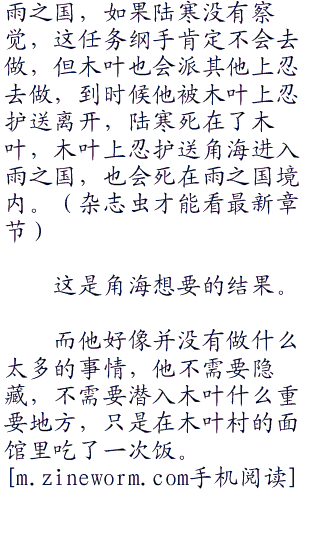 雨之国，如果陆寒没有察
觉，这任务纲手肯定不会去
做，但木叶也会派其他上忍
去做，到时候他被木叶上忍
护送离开，陆寒死在了木
叶，木叶上忍护送角海进入
雨之国，也会死在雨之国境
内。（杂志虫才能看最新章
节）
这是角海想要的结果。
而他好像并没有做什么
太多的事情，他不需要隐
藏，不需要潜入木叶什么重
要地方，只是在木叶村的面
馆里吃了一次饭。
[m.zineworm.com手机阅读]